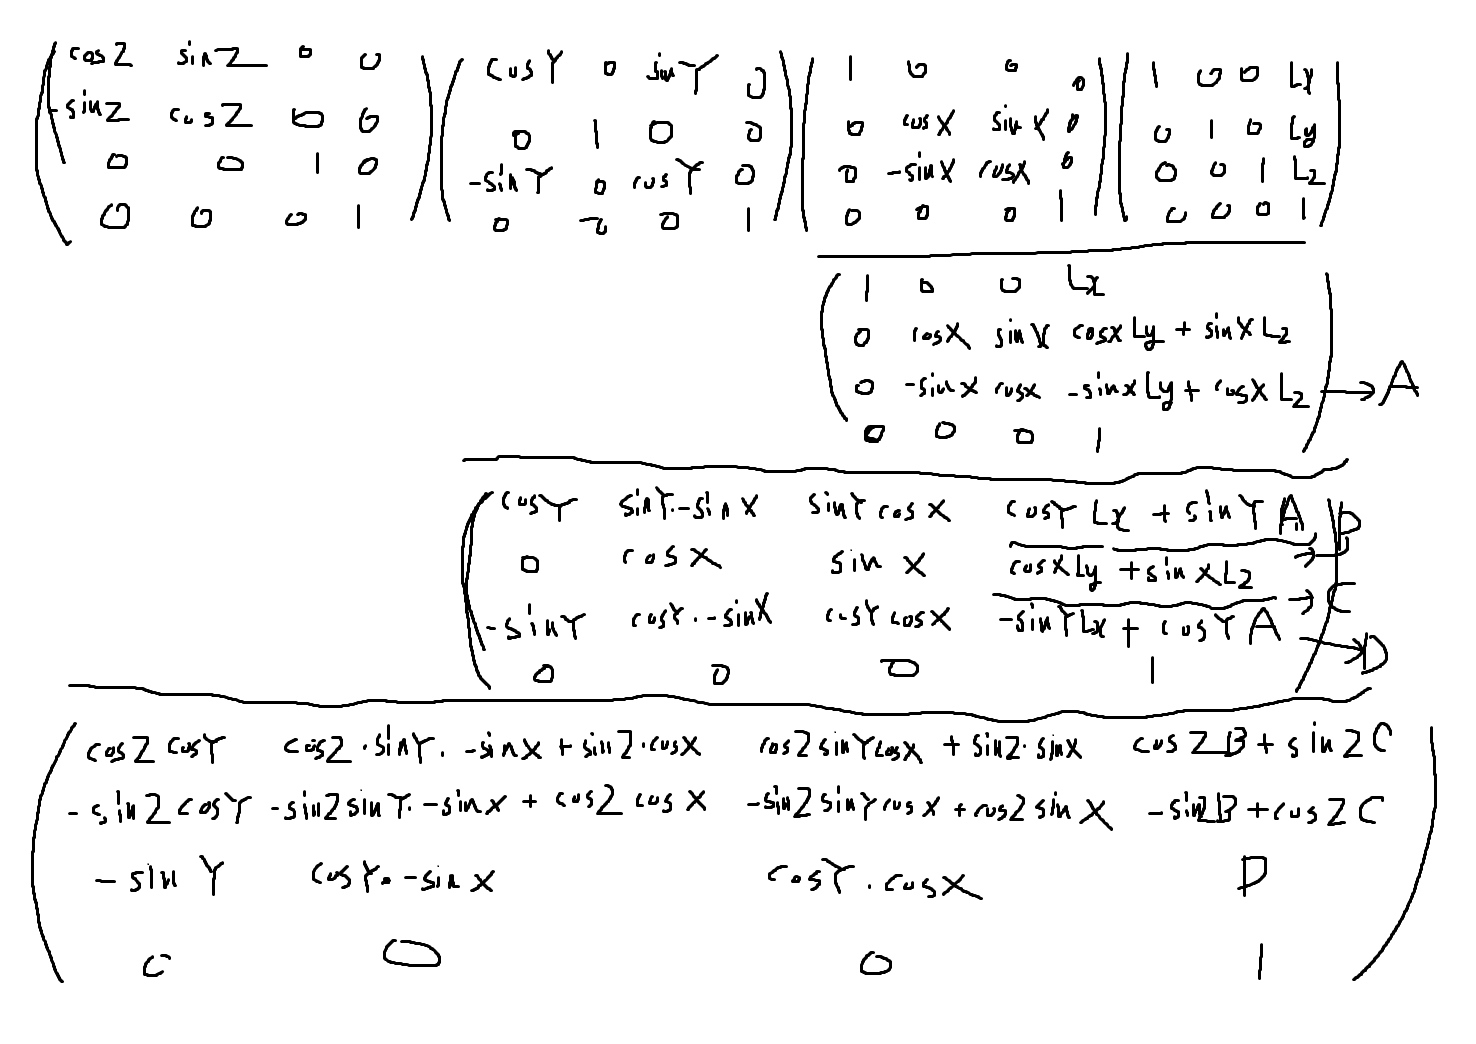 cosZ sinZ 0 0 cosY 0 sinY 0 1 0 0 0 1 0 0 Lx
-sinZ cosZ 0 0 0 1 0 0 0 cosX sinX 0 0 1 0 Ly
0 0 1 0 -sinY 0 cosY 0 0 -sinX cosX 0 0 0 1 Lz
0 0 0 1 0 0 0 1 0 0 0 1 0 0 0 1
1 0 0 Lx
0 cosX sinX cosxLy + sinXLz
0 -sinx cosx -sinxLy + cosXLz → A
0 0 0 1
cosY sinY·-sinX sinYcosX cosYLx + sinYA → B
0 cosX sinX cosXLy + sinXLz → C
-sinY cosY·-sinX cosYcosX -sinYLx + cosYA → D
0 0 0 1
cosZcosY cosZ·sinY·-sinx + sinZ·cosX cosZsinYcosX + sinZ·sinX cosZB + sinZC
-sinZcosY -sinZsinY·-sinx + cosZcosX -sinZsinYcosX + cosZsinX -sinZB + cosZC
-sinY cosY·-sinX cosY·cosX D
0 0 0 1